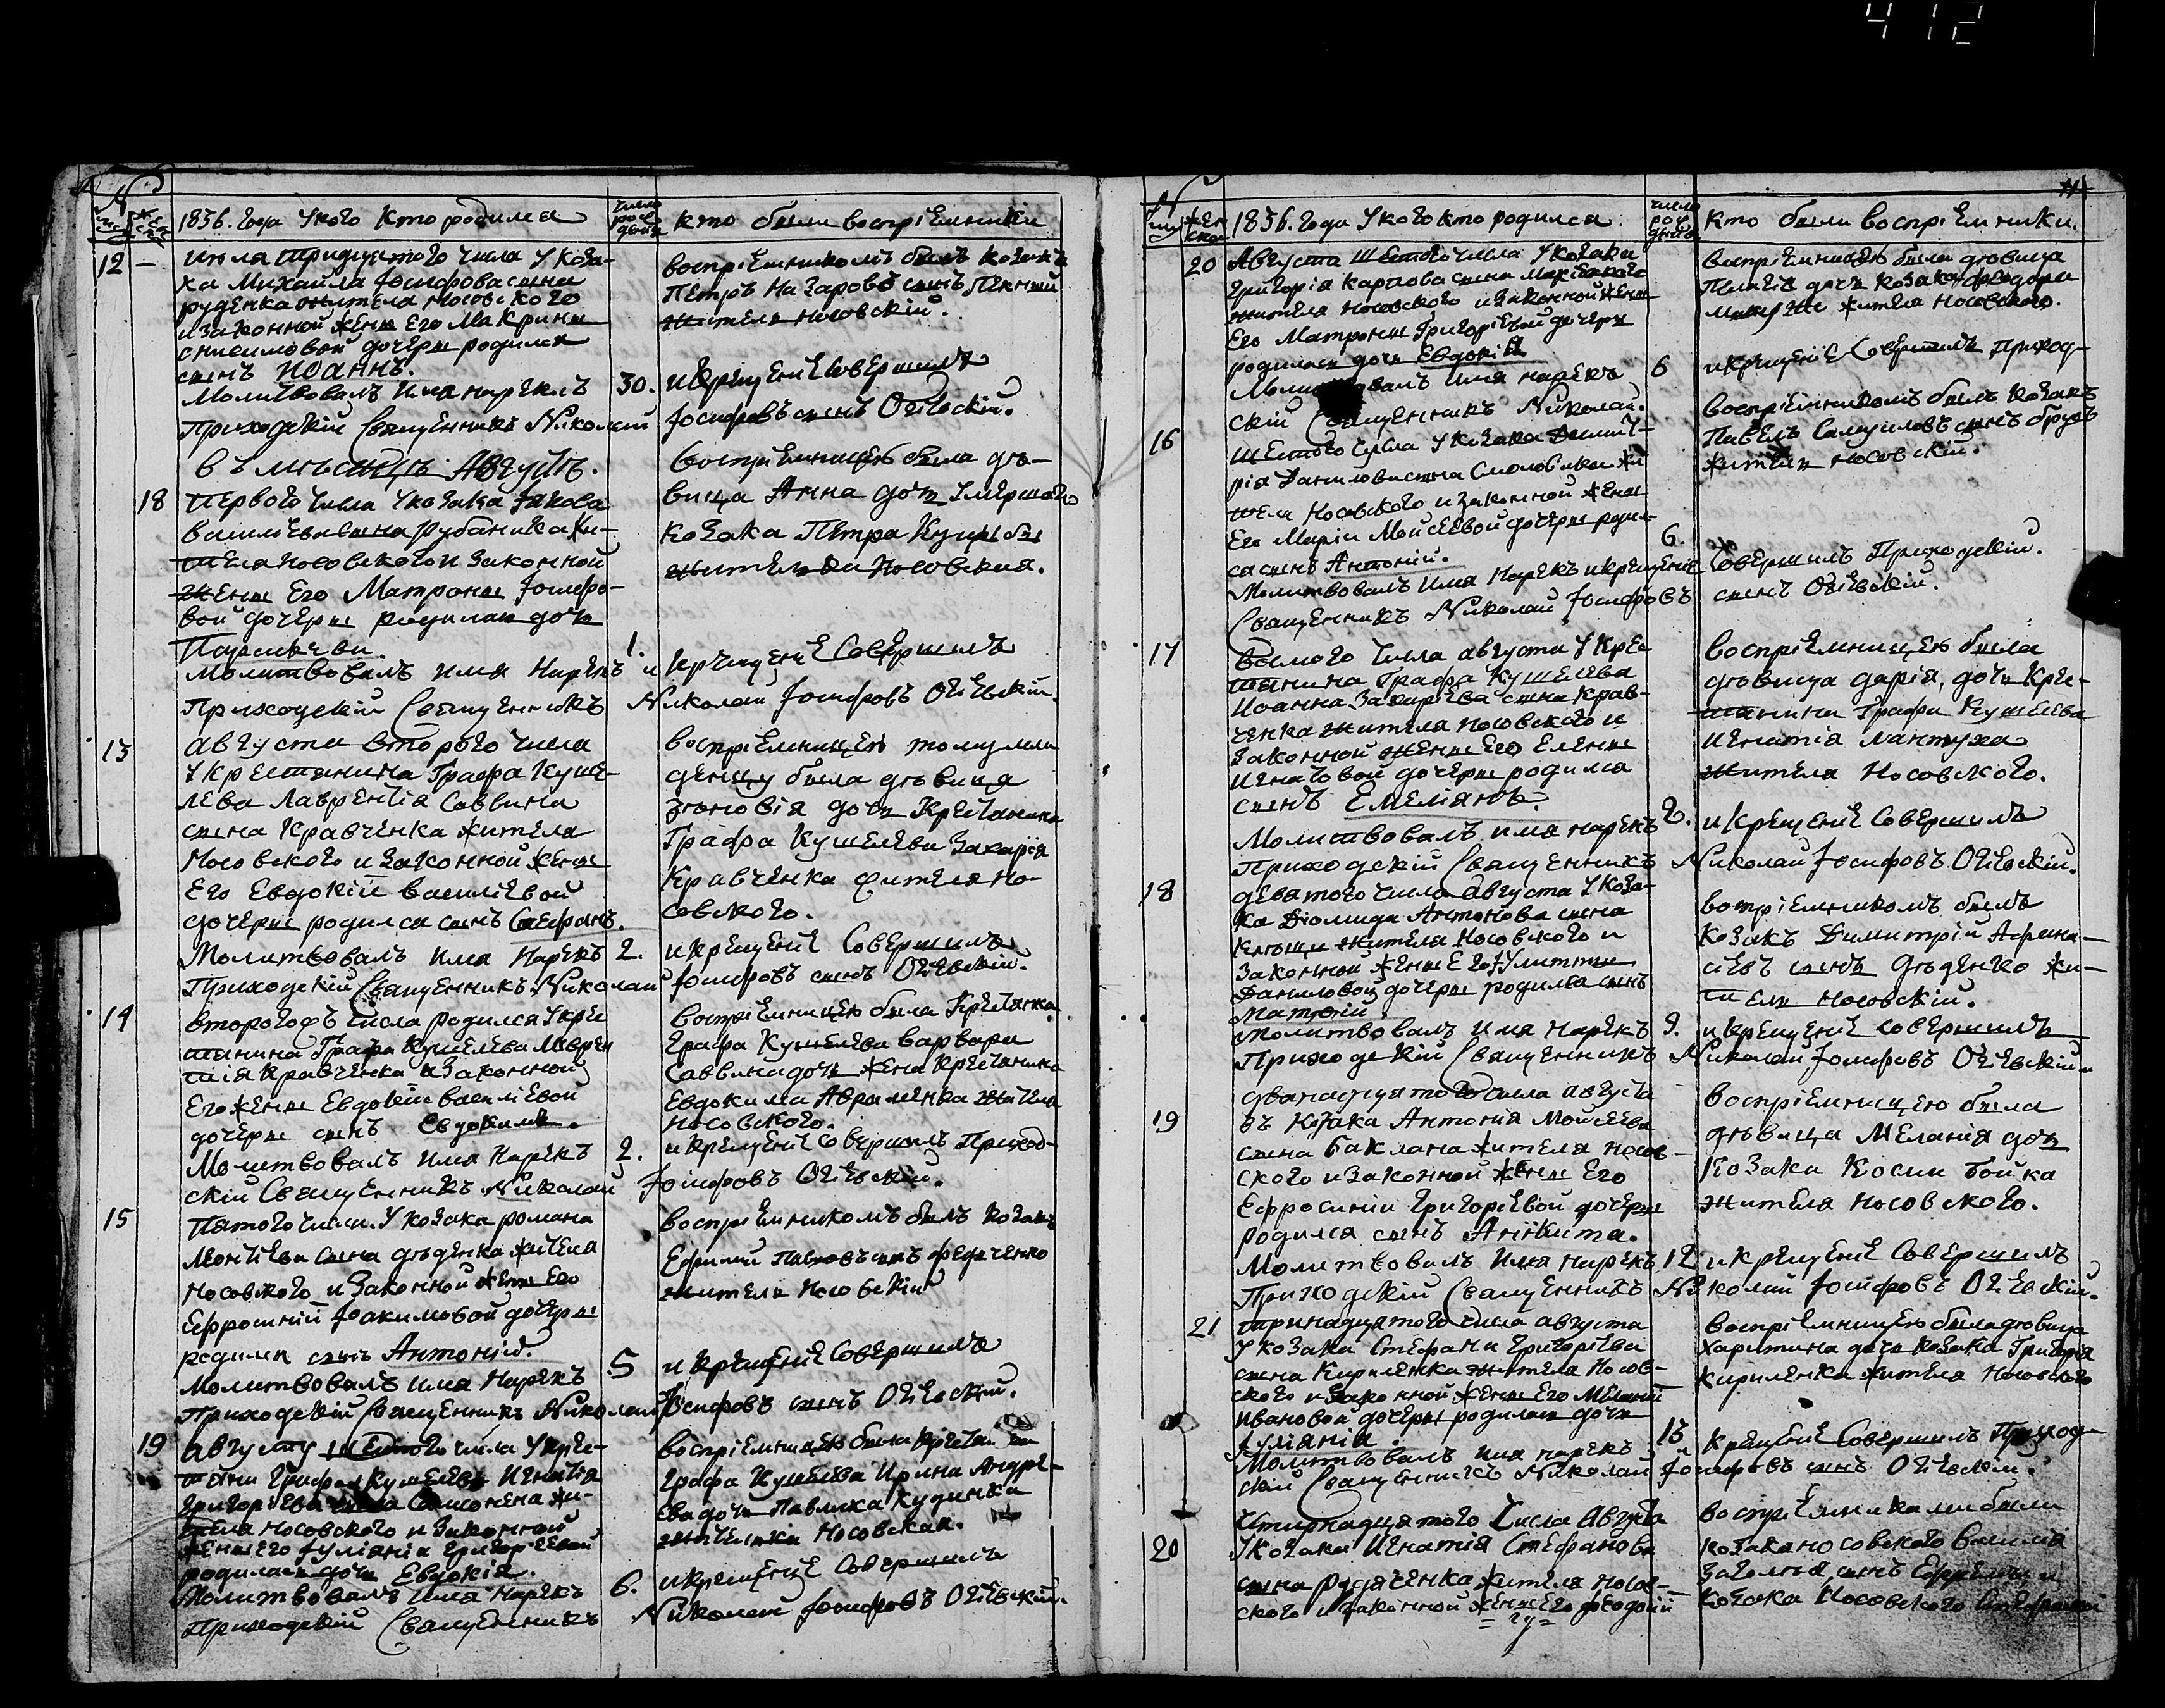 412
1836. года Укого кто родился
число рождения
кто были воспріемники
12 —
июля тридцятого числа У коза-
ка Михайла Іосифова сына
руденка жителя носовского
и законной жены Его Макрины
дочеры родился
сынъ Иоаннъ.
Молитвовалъ имя нареклъ
30.
Приходскій Священникъ Николай
воспріемникомъ былъ козакъ
Петръ Назаровъ сынъ
житель носовскій.
и крещеніе Совершилъ
Іосифовъ сынъ Огіевскій.
въ мѣсяцѣ Августѣ.
18
первого числа У козака Іакова
василіева сына рубаника жи-
теля носовского и законной
жены Его Матроны Іосифо-
вой дочеры родилась дочь
Параскева.
Молитвовалъ имя Нарекъ и
1.
Приходскій Священникъ
Воспріемницею была дѣ-
вица Анна дочь умершаго
козака Петра
жителька Носовская.
крещеніе Совершилъ
Николай Іосифовъ Огіевскій.
13
августа второго числа
У крестянина Графа Куше-
лева Лаврентія Саввина
сына Кравченка жителя
Носовского и законной жены
Его Евдокіи василіевой
дочеры родился сынъ Стефанъ.
Молитвовалъ имя Нарекъ
2.
Приходскій Священникъ Николай
воспріемницею тому мла-
денцу была дѣвица
зѣновія дочь Крестянина
Графа Кушелева Захарія
Кравченка жителя но-
совского.
и крещеніе Совершилъ
Іосифовъ сынъ Огіевскій.
14
второгожъ числа родился У кре
стянина Графа Кушелева Лаврен
тія Кравченка и законной
Его жены Евдокіи василіевой
дочеры сынъ Евдокимъ.
Молитвовалъ имя Нарекъ
2.
скій Священникъ Николай
воспріемницею была Крестянка
Графа Кушелева варвара
Саввина дочь жена крестянина
Евдокима Авраменка жителя
носовского.
и крещеніе Совершилъ Приход-
Іосифовъ Огіевскій.
15
Пятого числа У козака романа
сына дѣденка жителя
Носовского и законной жены Его
Ефросиніи Іоакимовой дочеры
родился сынъ Антоній.
Молитвовалъ имя Нарекъ
5
Приходскій Священникъ Николай
воспріемникомъ былъ козакъ
Ефимій Павловъ сынъ
житель Носовскій
и крещеніе Совершилъ
Іосифовъ сынъ Огіевскій.
19
августа шестого числа У кре-
Графа Кушелева Игнатія
Григоріева сына жи-
теля Носовского и законной
жены Его Іуліаніи Григоріевой
родилась дочь Евдокія.
Молитвовалъ имя Нарекъ
6.
Приходскій Священникъ
воспріемницею была
графа Кушелева Ирина Андре-
ева дочь Павлика
жителька Носовская.
и крещеніе Совершилъ
Николай Іосифовъ Огіевскій.
11
1836. года Укого кто родился
число рождения
кто были воспріемники.
20
Августа шестого числа У козака
Григорія Карпова сына
жителя Носовского и законной жены
Его Матроны Григоріевой дочеры
родилась дочь Евдокія
имя нарекъ
6
скій Священникъ Николай.
Воспріемницею была дѣвица
дочь козака феодора
жителя Носовского.
и крещеніе Совершилъ Приход-
16
Шестого числа У козака Дими-
рія Данилова сына жи
теля Носовского и законной жены
Его Маріи Моисеевой дочеры роди-
ся сынъ Антоній.
6.
Молитвовалъ имя Нарекъ и крещеніе
Священникъ Николай Іосифовъ
воспріемникомъ былъ козакъ
Павелъ Самуиловъ сынъ
житель Носовскій.
Совершилъ Приходскій.
сынъ Огіевскій.
17
Восмого числа августа У кре
стянина Графа Кушелева
Иоанна Захаріева сына Крав-
ченка жителя носовского и
законной жены Его Елены
Игнатовой дочеры родился
сынъ Емеліянъ.
Молитвовалъ имя нарекъ
8.
Приходскій Священникъ
воспріемницею была
дѣвица дарія, дочь Кре-
стянина Графа Кушелева
Игнатія
жителя Носовского.
и крещеніе Совершилъ
Николай Іосифовъ Огіевскій.
18
девятого числа августа У коза-
ка Діомида Антонова сына
жителя Носовского и
законной жены Его Іулитты
Даниловой дочеры родился сынъ
Матфій
Молитвовалъ имя Нарекъ
9.
Приходскій Священникъ
воспріемникомъ былъ
козакъ Димитрій Афана-
сіевъ сынъ дѣденко жи-
тель носовскій.
и крещеніе совершилъ
Николай Іосифовъ Огіевскій.
19
дванадцятого числа августа
въ козака Антонія Моисеева
сына баклана жителя носов-
ского и законной жены Его
Ефросиніи Григоріевой дочеры
родился сынъ Аникита.
Молитвовалъ имя нарекъ
12
Приходскій Священникъ
воспріемницею была
дѣвица Меланія дочь
козака Космы бойка
жителя Носовского.
и крещеніе Совершилъ
Николай Іосифовъ Огіевскій.
21
тринадцятого числа августа
У козака Стефана Григоріева
сына Кириленка жителя Носов-
ского и законной жены Его Меланіи
ивановой дочеры родилась дочь
Іуліанія.
Молитвовалъ имя нарекъ
13
скій Священникъ Николай
воспріемницею была дѣвица
Харитина дочь козака Григорія
Кириленка жителя Носовского
и крещеніе Совершилъ Приход-
Іосифовъ сынъ Огіевскій.
20
Четирнадцятого числа Августа
У козака Игнатія Стефанова
сына жителя Носов-
ского и законной жены Его феодосіи
воспріемниками были
козака носовского василія
сынъ Ефремъ и
козака Носовского